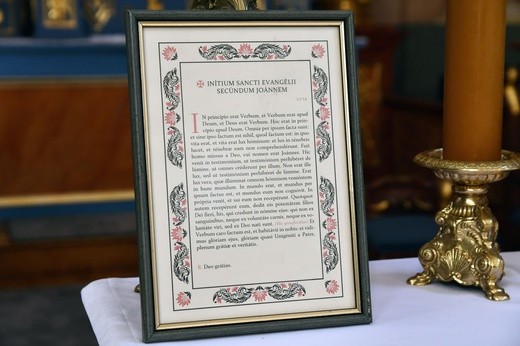 ✠ INÍTIUM SANCTI EVANGÉLII
SECÚNDUM JOÁNNEM
IN princípio erat Verbum, et Verbum erat apud
Deum, et Deus erat Verbum. Hoc erat in prin-
cípio apud Deum. Omnia per ipsum facta sunt:
et sine ipso factum est nihil, quod factum est: in ip-
so vita erat, et vita erat lux hóminum: et lux in ténebris
lucet, et ténebræ eam non comprehendérunt. Fuit
homo missus a Deo, cui nomen erat Joánnes. Hic
venit in testimónium, ut testimónium perhibéret de
lúmine, ut omnes créderent per illum. Non erat ille
lux, sed ut testimónium perhibéret de lúmine. Erat
lux vera, quæ illúminat omnem hóminem veniéntem
in hunc mundum. In mundo erat, et mundus per
ipsum factus est, et mundus eum non cognóvit. In
própria venit, et sui eum non recepérunt. Quotquot
autem recepérunt eum, dedit eis potestátem fílios
Dei fíeri, his, qui credunt in nómine ejus: qui non ex
sanguínibus, neque ex voluntáte carnis, neque ex vo-
luntáte viri, sed ex Deo nati sunt. Et
Verbum caro factum est, et habitávit in nobis: et vídi-
mus glóriam ejus, glóriam quasi Unigéniti a Patre,
plenum grátiæ et veritátis.
℟. Deo grátias.